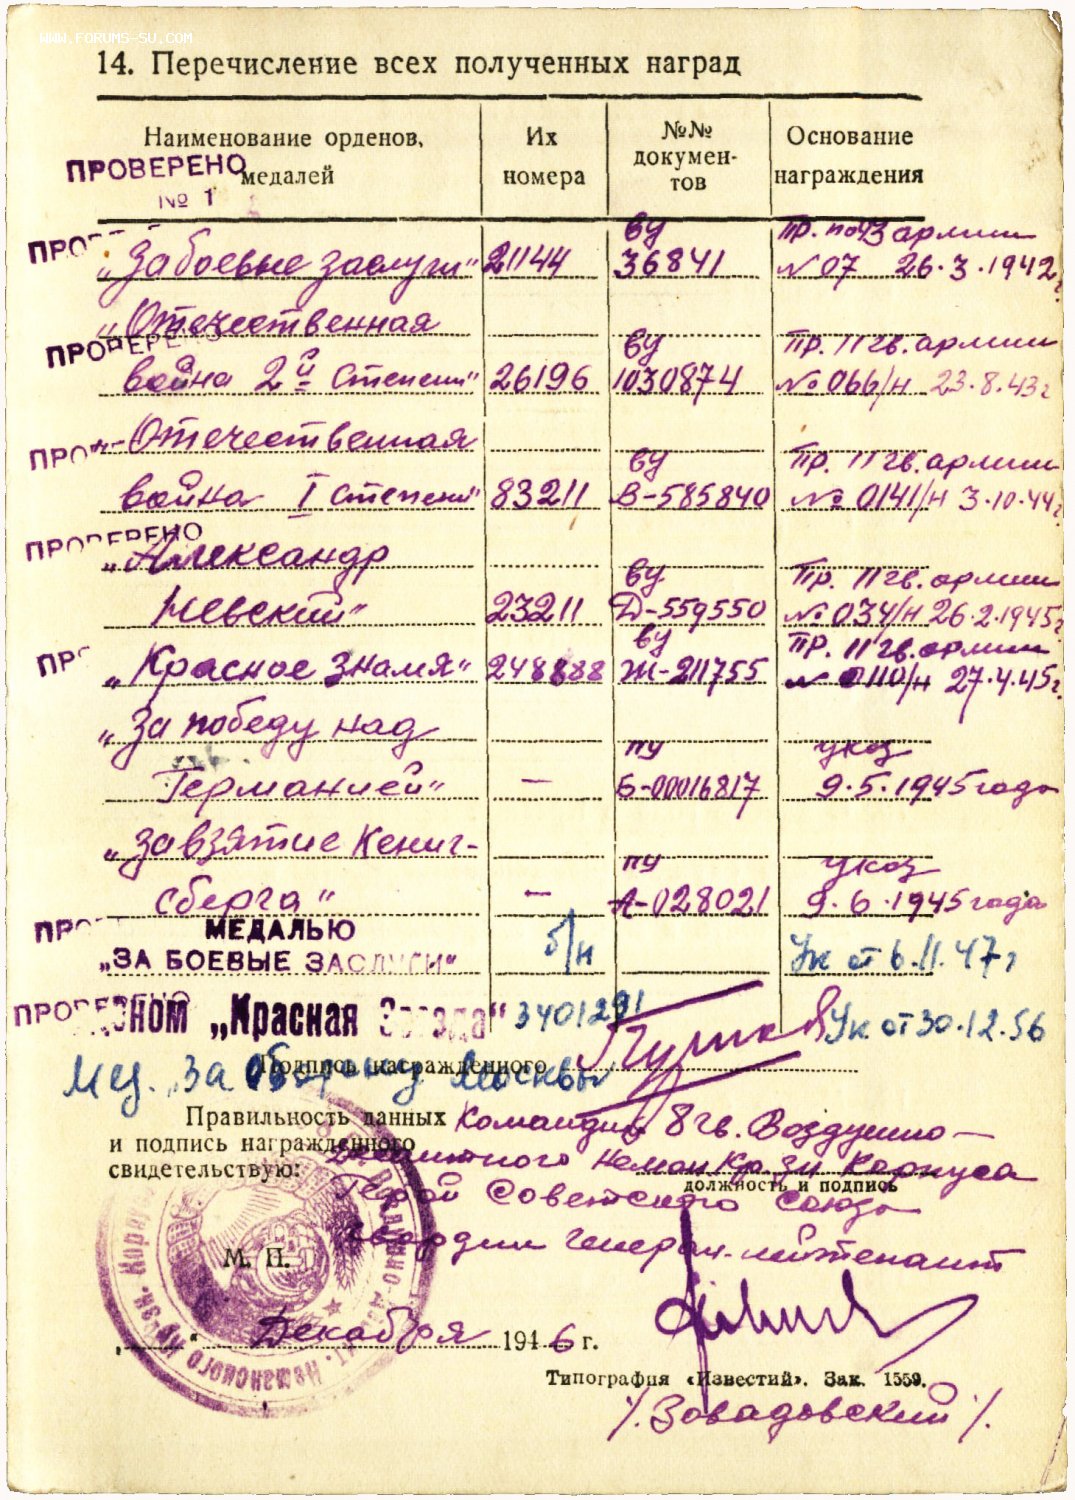 WWW.FORUMS-SU.COM
14. Перечисление всех полученных наград
Наименование орденов, медалей | Их номера | №№ докумен-тов | Основание награждения
ПРОВЕРЕНО
№ 1
ву Пр. по 43 армии
„За боевые заслуги" 21144 36841 № 07 26.3.1942 г.
„Отечественная ву Пр. 11 гв. армии
ПРОВЕРЕНО
война 2й степени" 26196 1030874 № 066/н 23.8.43 г
Отечественная ву Пр. 11 гв. армии
война I степени" 83211 В-585840 № 0141/н 3.10.44 г
ПРОВЕРЕНО
„Александр ву Пр. 11 гв. армии
Невский" 23211 Д-559550 № 034/н 26.2.1945 г
ву Пр. 11 гв. армии
„Красное Знамя" 248888 Ж-211755 № 0110/н 27.4.45 г.
„За победу над пу указ
Германией" — Б-00016817 9.5.1945 года
„За взятие Кениг- пу указ
сберга" — А-028021 9.6.1945 года
МЕДАЛЬЮ
„ЗА БОЕВЫЕ ЗАСЛУГИ" б/н Ук от 6.11.47 г
ПРОВЕРЕНО
„Красная Звезда" Ук от 30.12.56
Подпись награжденного
Мед. „За оборону Москвы
Правильность данных Командир 8 гв. Воздушно-
и подпись награжденного десантного Неман. Кр. Зн. Корпуса
свидетельствую: должность и подпись
Герой Советского Союза
гвардии генерал-лейтенант
М. П.
„ " Декабря 1946 г.
Типография «Известий». Зак. 1559.
/Завадовский/.